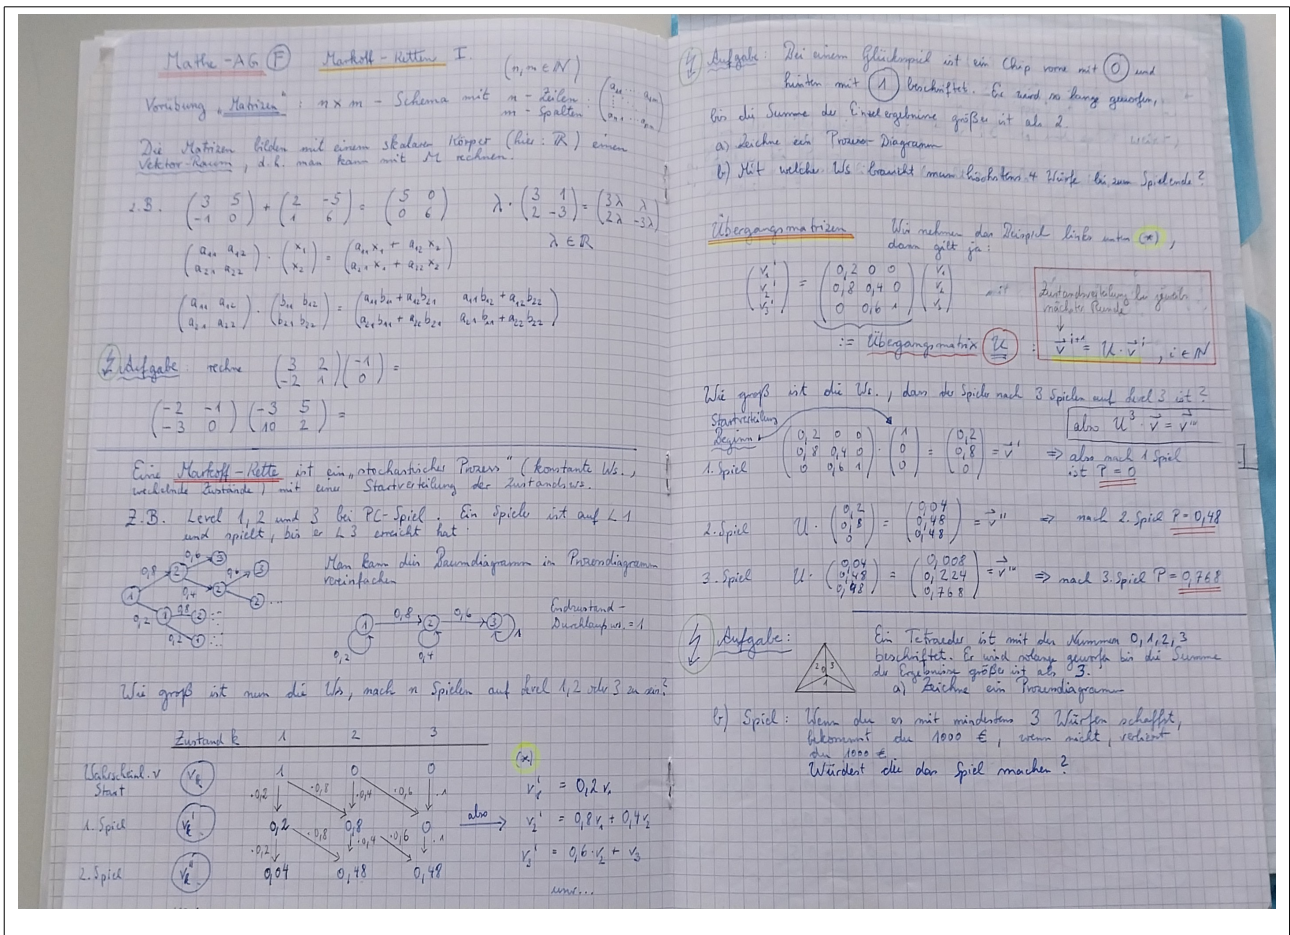 Mathe-AG F Markoff-Ketten I
(n, m ∈ ℕ)
Vorübung „Matrizen": n x m - Schema mit n - Zeilen
m - Spalten
Die Matrizen bilden mit einem skalaren Körper (hier: ℝ) einen
Vektor-Raum, d.h. man kann mit M rechnen.
z.B. (3 5 / -1 0) + (2 -5 / 1 6) = (5 0 / 0 6) λ · (3 1 / 2 -3) = (3λ λ / 2λ -3λ)
λ ∈ ℝ
(a11 a12 / a21 a22) · (x1 / x2) = (a11 x1 + a12 x2 / a21 x1 + a22 x2)
(a11 a12 / a21 a22) · (b11 b12 / b21 b22) = (a11 b11 + a12 b21 a11 b12 + a12 b22 / a21 b11 + a22 b21 a21 b12 + a22 b22)
Aufgabe: rechne (3 2 / -2 1) (-1 / 0) =
(-2 -1 / -3 0) (-3 5 / 10 2) =
Eine Markoff-Kette ist ein „stochastischer Prozess" (konstante Ws.,
wechselnde Zustände) mit einer Startverteilung der Zustandsws.
Z.B. Level 1, 2 und 3 bei PC-Spiel. Ein Spieler ist auf L1
und spielt, bis er L3 erreicht hat
Man kann das Baumdiagramm in Prozessdiagramm
vereinfachen
1 0,8 2 0,6 3
0,4 2
0,2 1 0,8 2
0,2 1
1 0,8 2 0,6 3 1
0,2 0,4
Endzustand -
Durchlaufws. = 1
Wie groß ist nun die Ws, nach n Spielen auf Level 1, 2 oder 3 zu sein?
Zustand k 1 2 3
Wahrscheinl. v
Start vk 1 0 0
·0,2 ·0,8 ·0,4 ·0,6 ·1
1. Spiel vk' 0,2 0,8 0
·0,2 ·0,8 ·0,4 ·0,6 ·1
2. Spiel vk'' 0,04 0,48 0,48
also
(*)
v1' = 0,2 v1
v2' = 0,8 v1 + 0,4 v2
v3' = 0,6 · v2 + v3
usw...
Aufgabe: Bei einem Glücksspiel ist ein Chip vorne mit 0 und
hinten mit 1 beschriftet. Er wird so lange geworfen,
bis die Summe der Einzelergebnisse größer ist als 2.
a) Zeichne ein Prozess-Diagramm
b) Mit welcher Ws braucht man höchstens 4 Würfe bis zum Spielende?
Übergangsmatrizen Wir nehmen das Beispiel links unten (*),
dann gilt ja:
(v1' / v2' / v3') = (0,2 0 0 / 0,8 0,4 0 / 0 0,6 1) (v1 / v2 / v3) mit
:= Übergangsmatrix U :
Zustandsverteilung bei jeweils
nächster Runde
v i+1 = U · v i , i ∈ ℕ
Wie groß ist die Ws., dass der Spieler nach 3 Spielen auf Level 3 ist?
also U³ · v = v'''
Startverteilung
Beginn
1. Spiel (0,2 0 0 / 0,8 0,4 0 / 0 0,6 1) · (1 / 0 / 0) = (0,2 / 0,8 / 0) = v' ⇒ also nach 1 Spiel
ist P = 0
2. Spiel U · (0,2 / 0,8 / 0) = (0,04 / 0,48 / 0,48) = v'' ⇒ nach 2. Spiel P = 0,48
3. Spiel U · (0,04 / 0,48 / 0,48) = (0,008 / 0,224 / 0,768) = v''' ⇒ nach 3. Spiel P = 0,768
Aufgabe: Ein Tetraeder ist mit den Nummern 0, 1, 2, 3
beschriftet. Er wird solange geworfen bis die Summe
der Ergebnisse größer ist als 3.
2 0 3
1
a) Zeichne ein Prozessdiagramm
b) Spiel: Wenn du es mit mindestens 3 Würfen schaffst,
bekommst du 1000 €, wenn nicht, verlierst
du 1000 €.
Würdest du das Spiel machen?